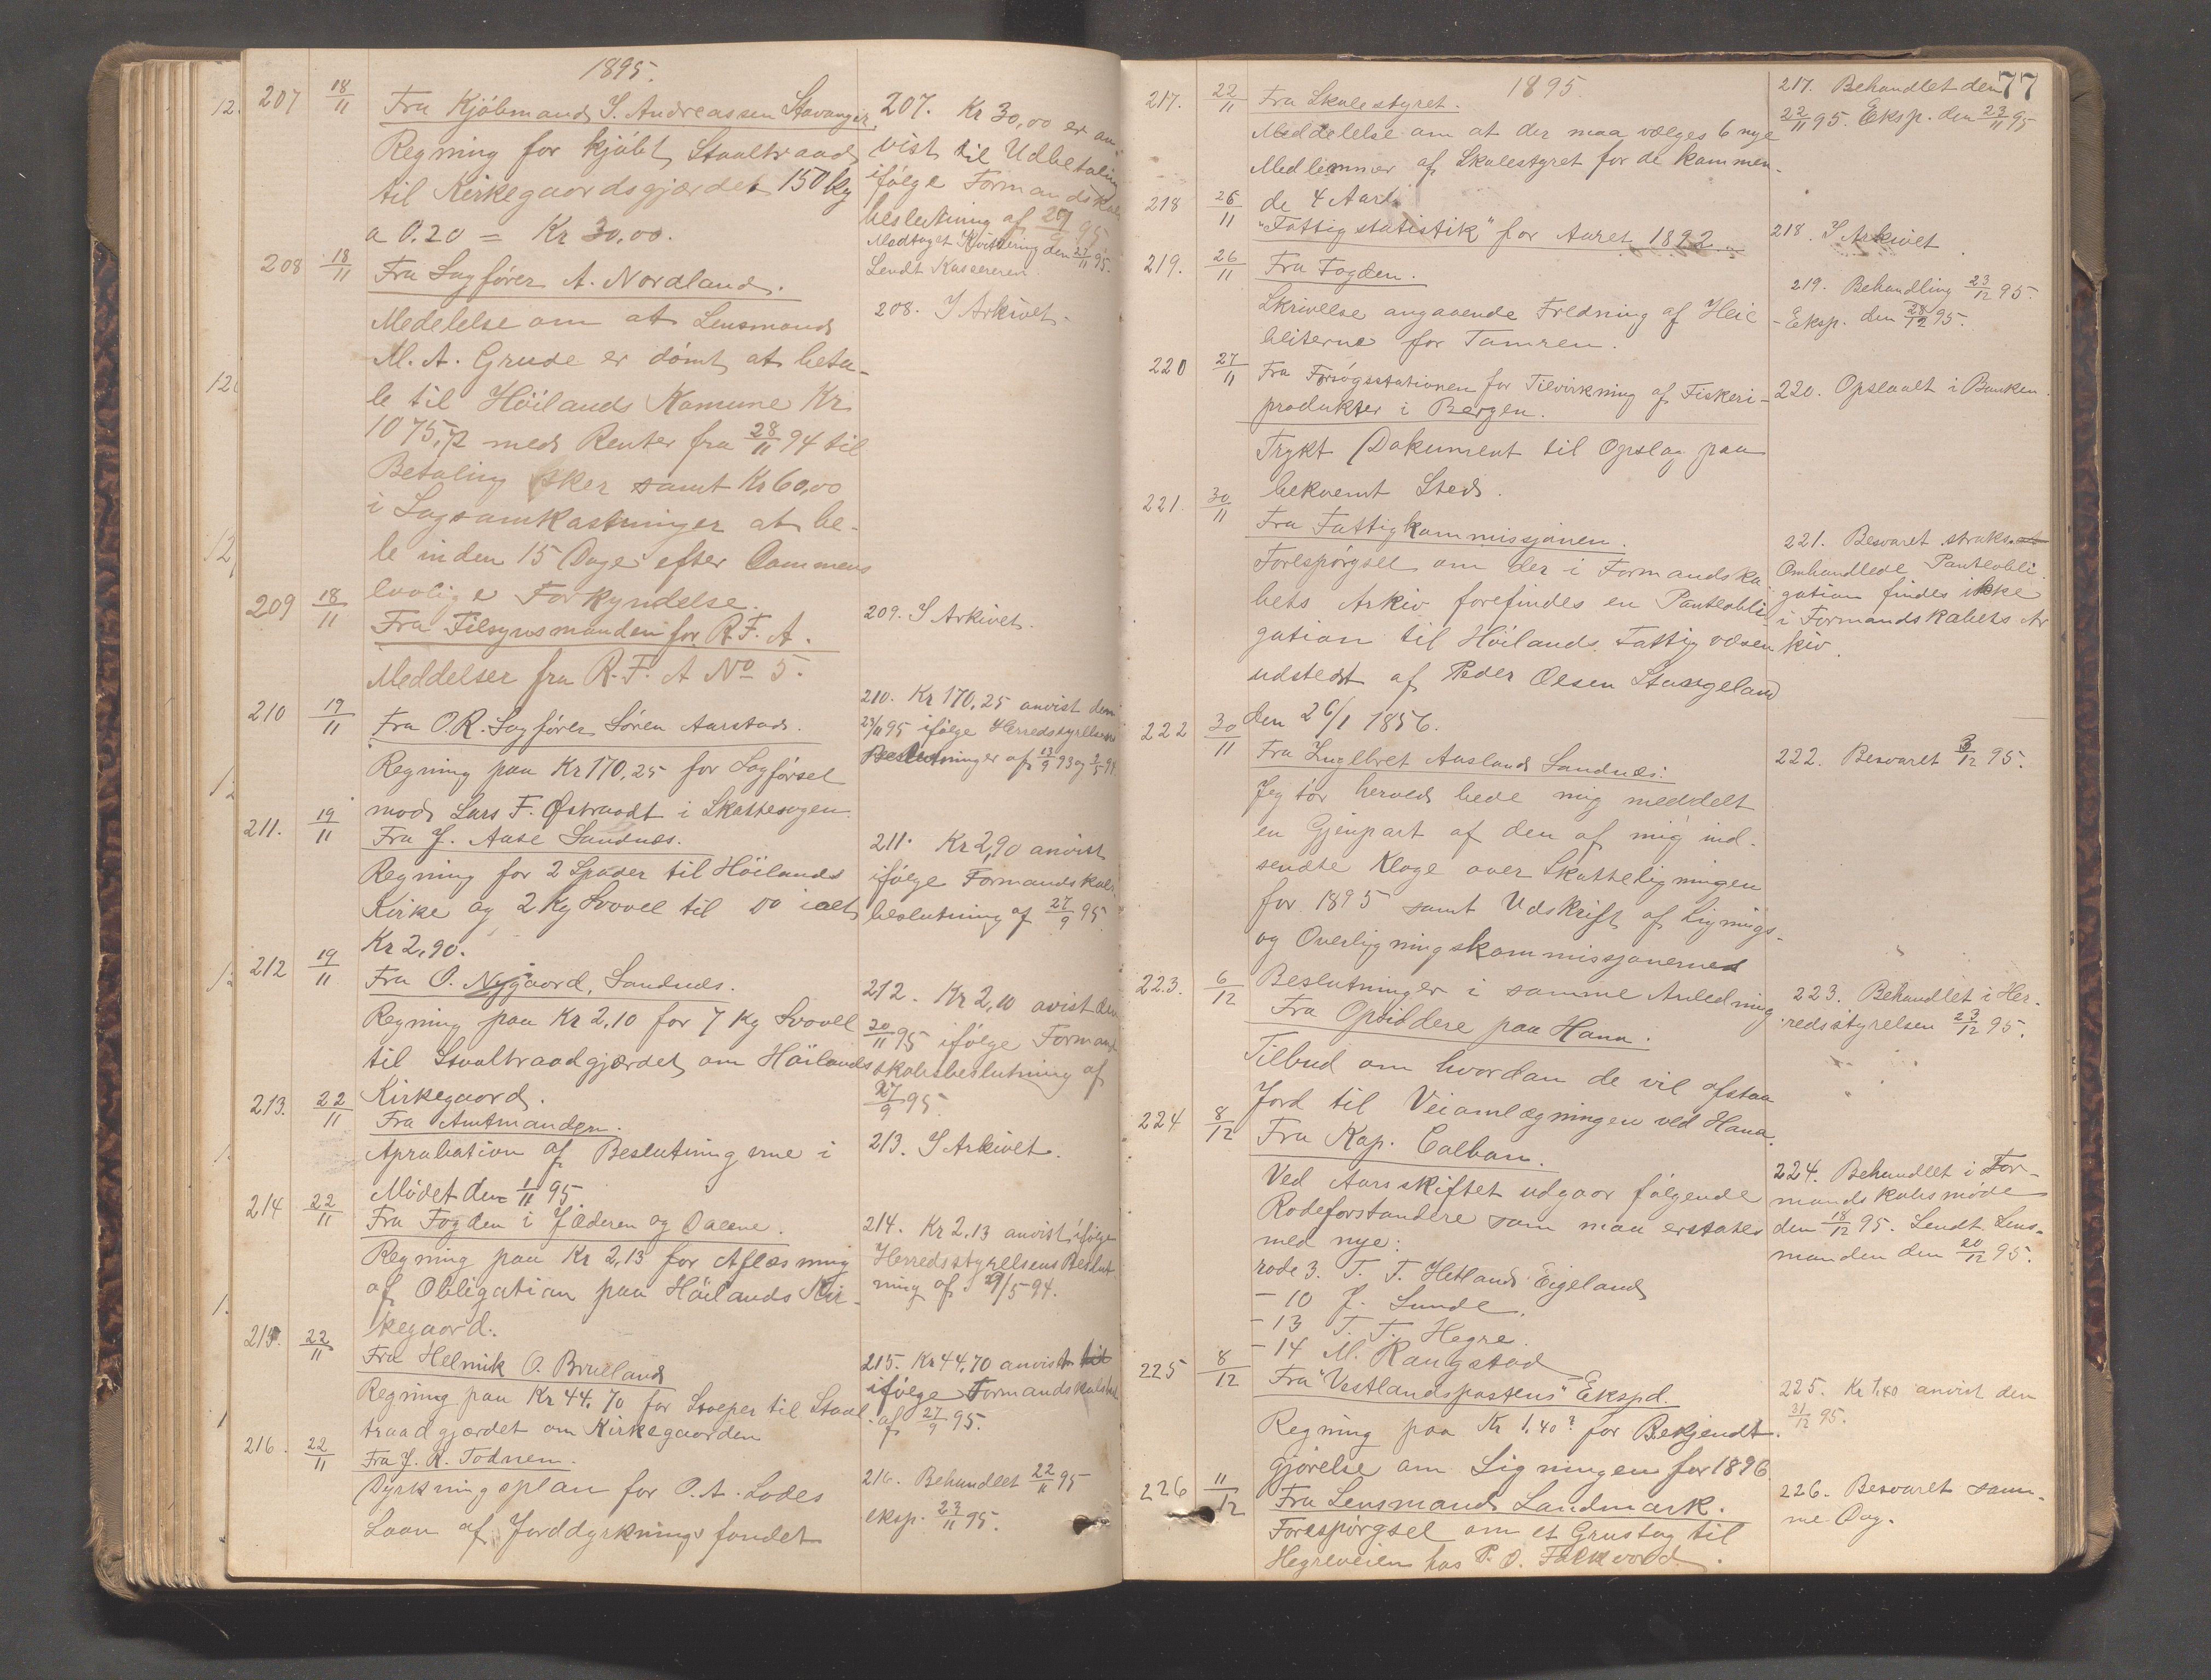 1895.
207 18/11 Fra Kjöbmand S. Andreassen Stavanger.
Regning for kjöbt Staaltraad
til Kirkegaardsgjærdet 150 kg
a 0.20 = Kr 30,00.
207. Kr 30,00 er an-
vist til Udbetaling
ifölge Formandskabs
beslutning af 27/9 95
Modtaget Kvittering den 27/11 95.
Sendt Kassereren.
208 18/11 Fra Sagförer A. Nordland.
Medelelse om at Lensmand
M. A. Grude er dömt at beta-
le til Höilands Komune Kr
1075,72 med Renter fra 28/11 94 til
Betaling sker samt Kr 60,00
i Sagsomkastninger at be-
le inden 15 Dage efter Dommens
lovlige Forkyndelse.
208. I Arkivet.
209 18/11 Fra Tilsynsmanden for R. F. A.
Meddelser fra R. F. A No 5.
209. I Arkivet.
210 19/11 Fra O. R. Sagförer Sören Aarstad.
Regning paa Kr 170,25 for Sagförsel
mod Lars F. Østraadt i Skattesagen.
210. Kr 170,25 anvist den
23/11 95 ifölge Herredsstyrelsens
Beslutninger af 13/9 93 og
211. 19/11 Fra J. Aase Sandnæs.
Regning for 2 Spader til Höilands
Kirke og 2 Kg Svovel til Do ialt
Kr 2,90.
211. Kr 2,90 anvist
ifölge Formandskabs
beslutning af 27/9 95
212 19/11 Fra O. Nygaard, Sandnæs.
Regning paa Kr 2,10 for 7 Kg Svovel
til Staaltraadgjærdet om Höilands
Kirkegaard.
212. Kr 2,10 avist den
20/11 95 ifölge Formand
skabsbeslutning af
27/9 95.
213. 22/11 Fra Amtmanden.
Aprobation af Beslutningerne i
Mödet den 1/11 95.
213. I Arkivet.
214 22/11 Fra Fogden i Jæderen og Dalene.
Regning paa Kr 2,13 for Aflæsning
af Obligation paa Höilands Kir-
kegaard.
214. Kr 2,13 anvist ifölge
Herredsstyrelsens Beslut-
ning af 29/5 94.
215. 22/11 Fra Helmik O. Brueland
Regning paa Kr 44,70 for Stolper til Staal-
traadgjærdet om Kirkegaarden
215. Kr 44,70 anvist
ifölge Formandskabsbesl
af 27/9 95.
216. 22/11 Fra J. R. Todnem.
Dyrkningsplan for O. A. Lodes
Laan af Jorddyrkningsfondet
216. Behandlet 22/11 95
eksp. 23/11 95.
77
1895.
217. 22/11 Fra Skolestyret.
Meddelelse om at der maa vælges 6 nye
Medlemmer af Skolestyret for de kommen-
de 4 Aar.
217. Behandlet den
22/11 95. Eksp. den 23/11 95
218 26/11 "Fattigstatistik" for Aaret 1892.
218. I Arkivet.
219. 26/11 Fra Fogden.
Skrivelse angaaende Fredning af Heie
bliterne for Tamren.
219. Behandling 23/12 95.
- Eksp. den 28/12 95.
220 27/11 Fra Forsögsstationen for Tilvirkning af Fiskeri-
produkter i Bergen.
Trykt Dokument til Opslag paa
bekvemt Sted.
220. Opslaalt i Banken.
221. 30/11 Fra Fattigkommissjonen.
Forespörgsel om der i Formandska
bets Arkiv forefindes en Panteobli-
gation til Höilands Fattigvæsen
udstedt af Peder Olsen Stangeland
den 26/1 1856.
221. Besvaret straks.
Omhandlede Panteobli
gation findes ikke
i Formandskabets Ar
kiv.
222 30/11 Fra Engelbret Aasland Sandnæs.
Jeg tör herved bede mig meddelt
en Gjenpart af den af mig ind-
sendte Klage over Skatteligningen
for 1895 samt Udskrift af Lignings-
og Overligningskommissjonernes
Beslutninger i samme Anledning.
222. Besvaret 3/12 95.
223. 6/12 Fra Opsiddere paa Hana.
Tilbud om hvordan de vil afstaa
Jord til Veiomlægningen ved Hana.
223. Behandlet i Her-
redsstyrelsen 23/12 95.
224 8/12 Fra Kap. Colban.
Ved Aarsskiftet udgaar fölgende
Rodeforstandere som maa erstates
med nye:
rode 3. T. T. Hetland Eigeland
- 10 J. Lunde.
- 13 T. T. Hegre.
- 14 M. Raugstad
224. Behandlet i For-
mandskabsmöde
den 18/12 95. Sendt Lens-
manden den 20/12 95.
225 8/12 Fra "Vestlandspostens" Ekspd.
Regning paa Kr 1,40? for Bekjendt-
gjörelse om Ligningen for 1896.
225. Kr 1,40 anvist den
31/12 95.
226 11/12 Fra Lensmand Landmark.
Forespörgsel om et Grustag til
Hegreveien hos P. O. Folkvord.
226. Besvaret sam-
me Dag.